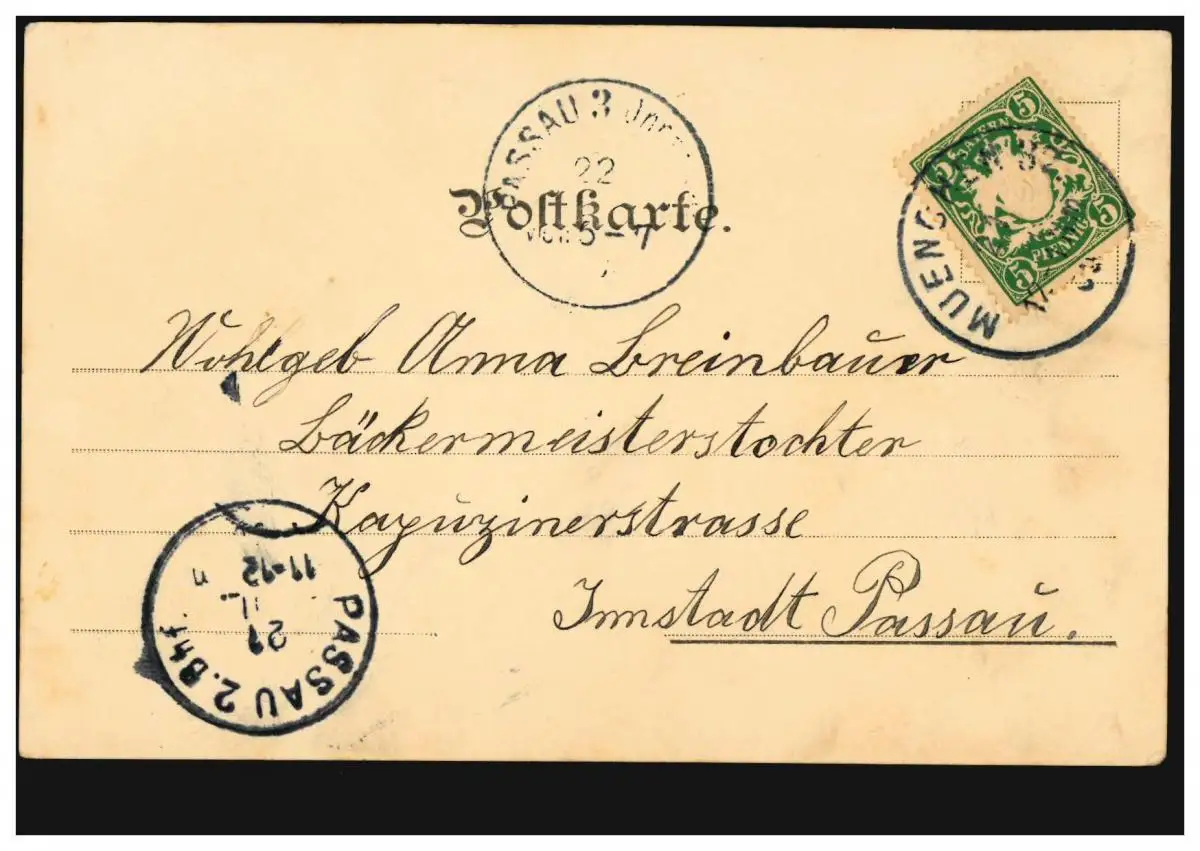 PASSAU 3
22
Vor. 6-7
Postkarte.
BAYERN
5
5
5
PFENNIG
MUENCHEN 32
Wohlgeb Anna Breinbauer
Bäckermeisterstochter
Kapuzinerstrasse
Innstadt Passau.
PASSAU 2. Bhf.
21
11-12